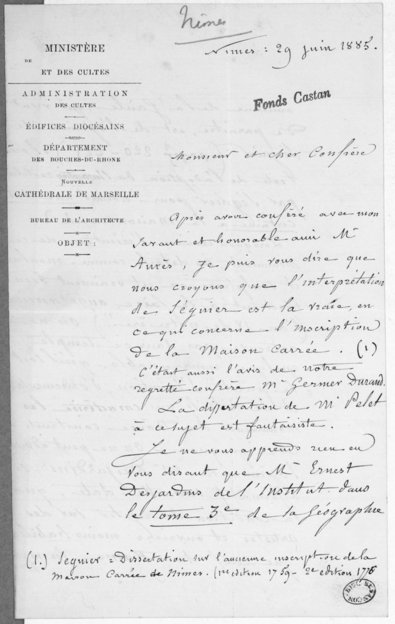 Nîmes
MINISTÈRE
DE
ET DES CULTES
ADMINISTRATION
DES CULTES
ÉDIFICES DIOCÉSAINS
DÉPARTEMENT
DES BOUCHES-DU-RHONE
NOUVELLE
CATHÉDRALE DE MARSEILLE
BUREAU DE L'ARCHITECTE
OBJET :
Nimes : 29 juin 1885.
Fonds Castan
Monsieur et cher Confrère
Après avoir conféré avec mon
savant et honorable ami Mr
Aurès, je puis vous dire que
nous croyons que l'interprétation
de Séguier est la vraie, en
ce qui concerne l'inscription
de la Maison Carrée. (1)
C'était aussi l'avis de notre
regretté confrère Mr Germer Durand.
La dissertation de Mr Pelet
à ce sujet est fantaisiste.
Je ne vous apprends rien en
vous disant que Mr Ernest
Desjardins de l'Institut dans
le tome 3e de la Géographie
(1.) Séguier : Dissertation sur l'ancienne inscription de la
Maison Carrée de Nimes. (1re édition 1759 - 2e édition 1776